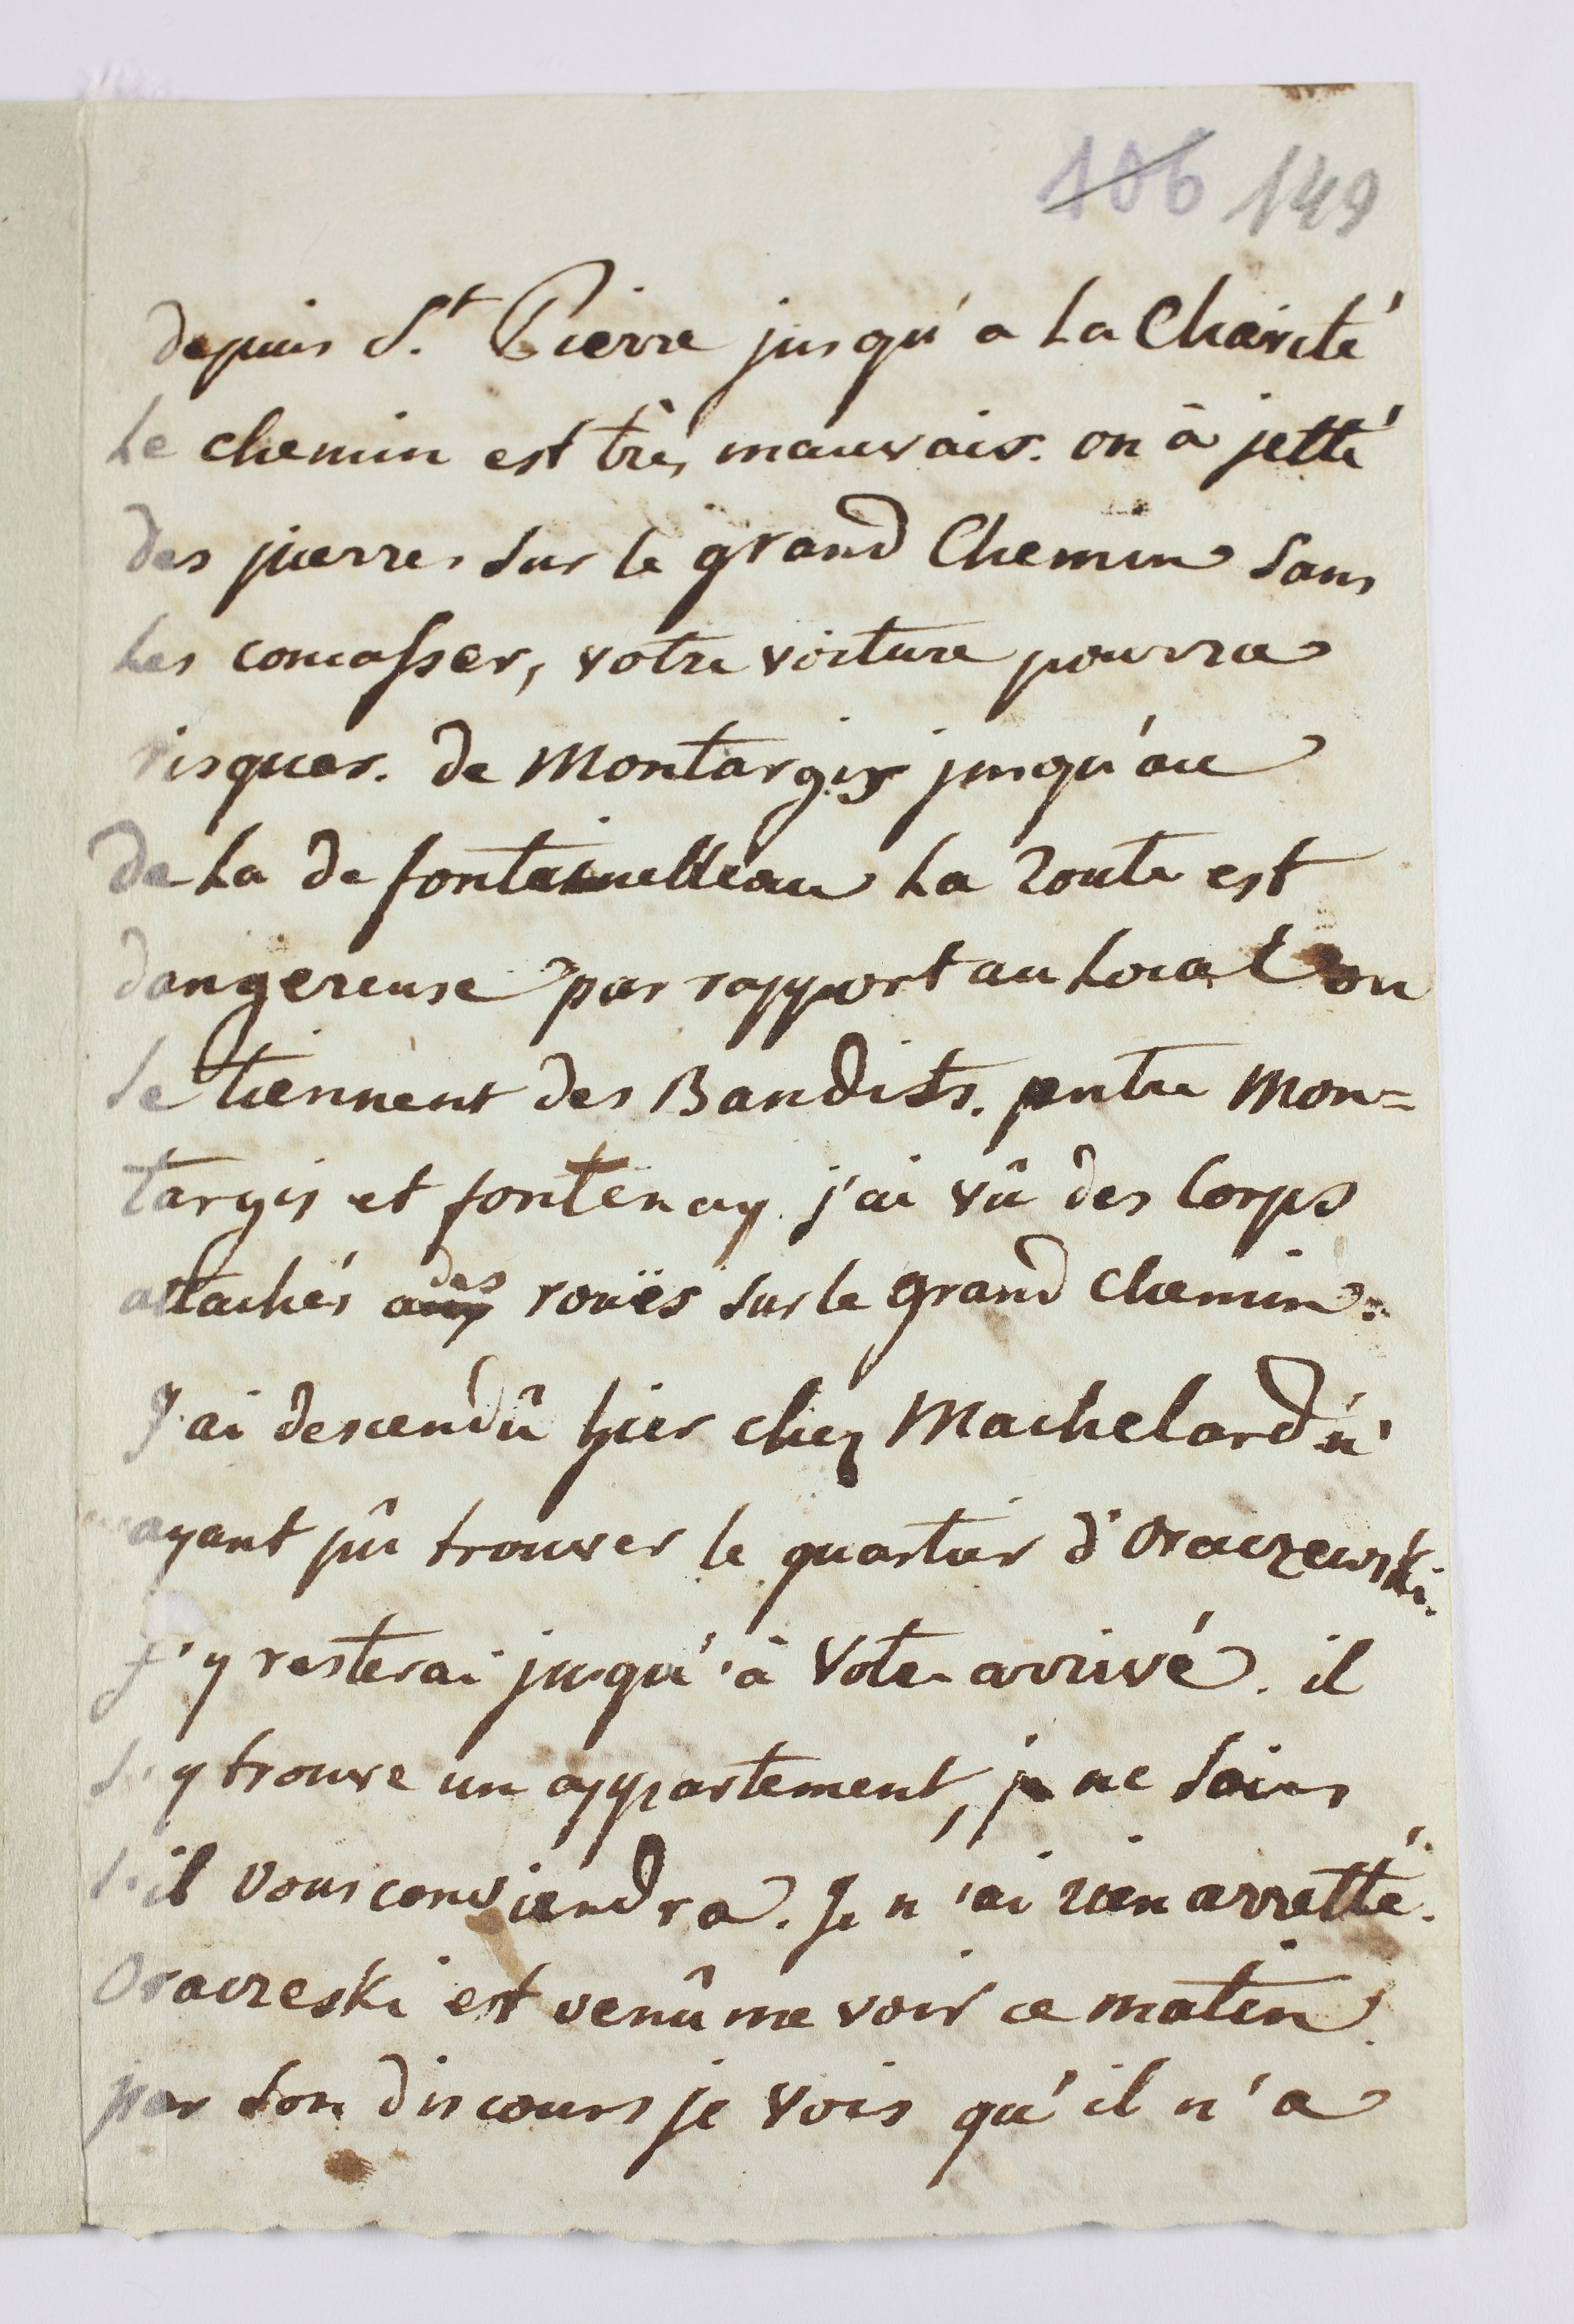 106 149
depuis St. Pierre jusqu'a La Charité
Le chemin est très mauvais. on à jetté
des pierres sur le grand Chemin sans
les concasser, votre voiture pourra
risquer. de Montargis jusqu'au
de La de fontainelleau La Route est
dangereuse par rapport au Local ou
se tiennent des Bandits. entre Mon=
targis et fontenay j'ai vû des Corps
attachés aux des rouës sur le grand chemin.
J'ai descendû hier chez Machelard n'
ayant pû trouver le quartier d'Oraczewski.
J'y resterai jusqu'à Vote arrivé. il
s'y trouve un appartement, je ne sais
s'il vous conviendra. Je n'ai rien arretté.
Oraczeski est venû me voir ce matin
par son discours je vois qu'il n'a